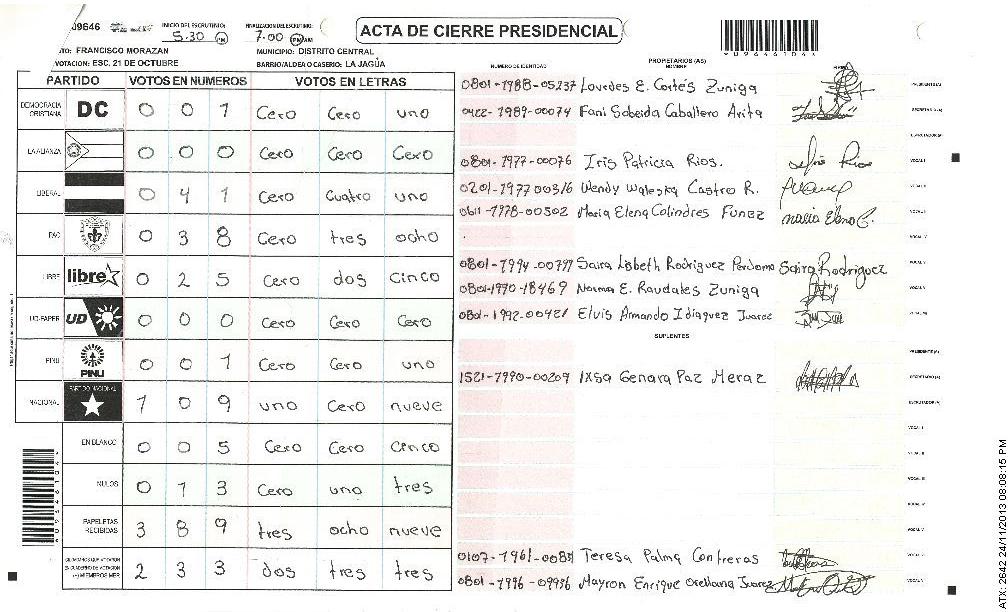 09646 INICIO DEL ESCRUTINIO: 5:30 PM FINALIZACION DEL ESCRUTINIO: 7:00 PM AM
ACTA DE CIERRE PRESIDENCIAL
*09646104*
TO: FRANCISCO MORAZAN MUNICIPIO: DISTRITO CENTRAL
VOTACION: ESC. 21 DE OCTUBRE BARRIO/ALDEA O CASERIO: LA JAGÜA
PARTIDO VOTOS EN NUMEROS VOTOS EN LETRAS
DEMOCRACIA CRISTIANA DC 0 0 1 Cero Cero uno
LA ALIANZA 0 0 0 Cero Cero Cero
LIBERAL 0 4 1 Cero Cuatro uno
PAC 0 3 8 Cero tres ocho
LIBRE libre 0 2 5 Cero dos Cinco
UD-FAPER UD 0 0 0 Cero Cero Cero
PINU PINU 0 0 1 Cero Cero uno
NACIONAL PARTIDO NACIONAL 1 0 9 uno Cero nueve
EN BLANCO 0 0 5 Cero Cero Cinco
NULOS 0 1 3 Cero uno tres
PAPELETAS RECIBIDAS 3 8 9 tres ocho nueve
2 3 3 dos tres tres
PROPIETARIOS (AS)
NUMERO DE IDENTIDAD NOMBRE FIRMA
0801-1988-05237 Lourdes E. Cortés Zuniga PRESIDENTE (A)
0422-1989-00074 Fani Sobeida Caballero Arita SECRETARIO (A)
ESCRUTADOR (A)
0801-1977-00076 Iris Patricia Rios. Iris Rios VOCAL I
0201-1977 00316 Wendy Waleska Castro R.
0611-1978-00502 Maria Elena Colindres Funez Maria Elena C.
0801-1994-00797 Saira Lisbeth Rodriguez Perdomo Saira Rodriguez
0801-1970-18469 Norma E. Raudales Zuniga
0801-1992-00421 Elvis Armando Idiaquez Juarez
SUPLENTES
PRESIDENTE (A)
1521-1990-00209 Ixsa Genara Paz Meraz SECRETARIO (A)
ESCRUTADOR (A)
0107-1961-0083 Teresa Palma Contreras
0801-1996-09936 Mayron Enrique Orellana Juarez
ATX-2642 24/11/2013 08:08:15 PM